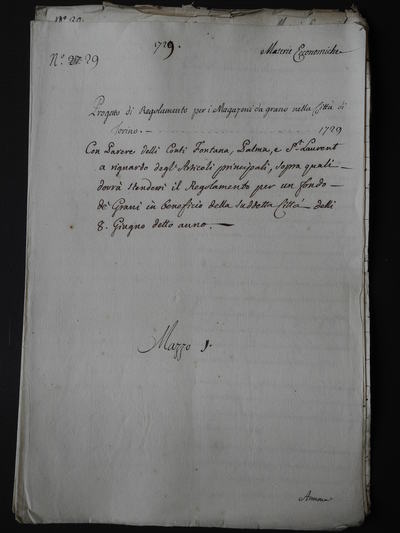 1729.
Materie Economiche
N.° 27 29
Progetto di Regolamento per i Magazeni da grano nella Città di
Torino. 1729
Con Parere delli Conti Fontana, Palma, e S.t Laurent
a riguardo degl'Articoli principali, sopra quali
dovrà stendersi il Regolamento per un fondo
de' Grani in beneficio della suddetta Città delli
8. Giugno detto anno.
Mazzo 1.
Annona